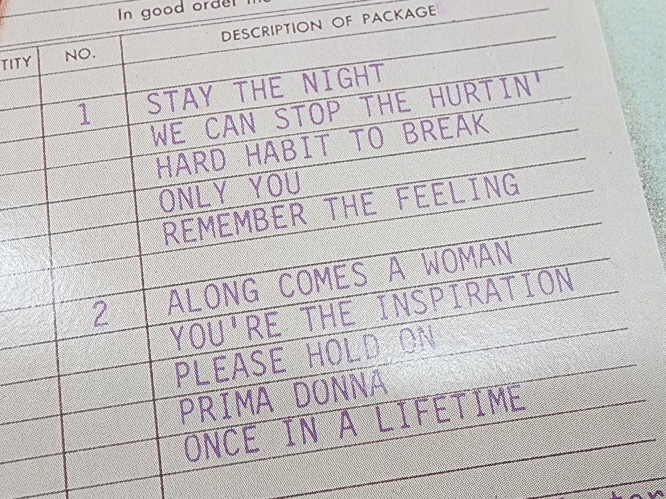 In good order
TITY NO. DESCRIPTION OF PACKAGE
1 STAY THE NIGHT
WE CAN STOP THE HURTIN'
HARD HABIT TO BREAK
ONLY YOU
REMEMBER THE FEELING
2 ALONG COMES A WOMAN
YOU'RE THE INSPIRATION
PLEASE HOLD ON
PRIMA DONNA
ONCE IN A LIFETIME